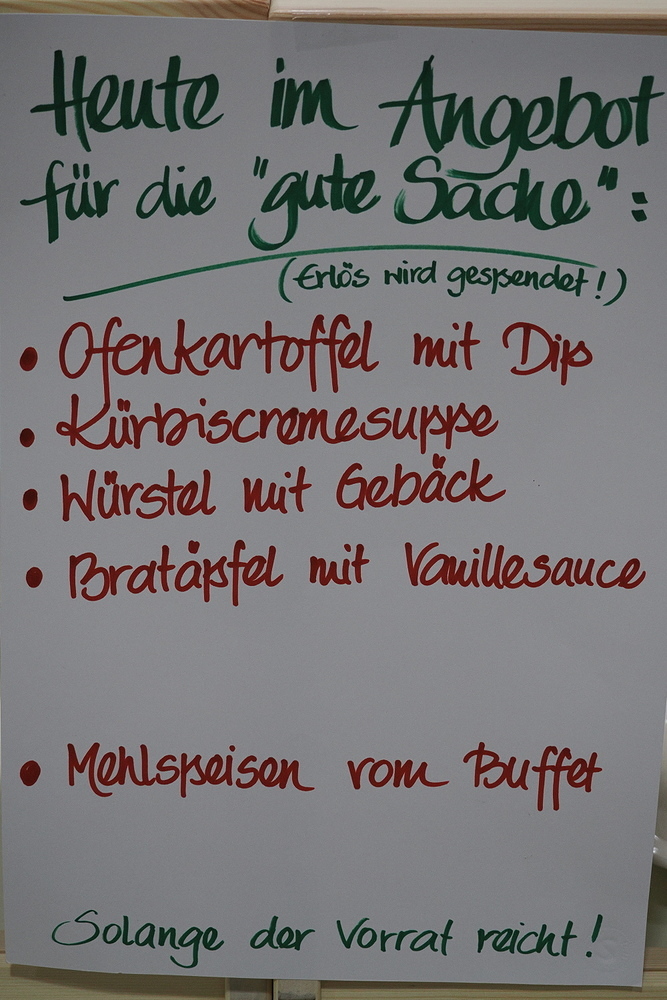 Heute im Angebot
für die "gute Sache":
(Erlös wird gespendet!)
• Ofenkartoffel mit Dip
• Kürbiscremesuppe
• Würstel mit Gebäck
• Bratäpfel mit Vanillesauce
• Mehlspeisen vom Buffet
Solange der Vorrat reicht!